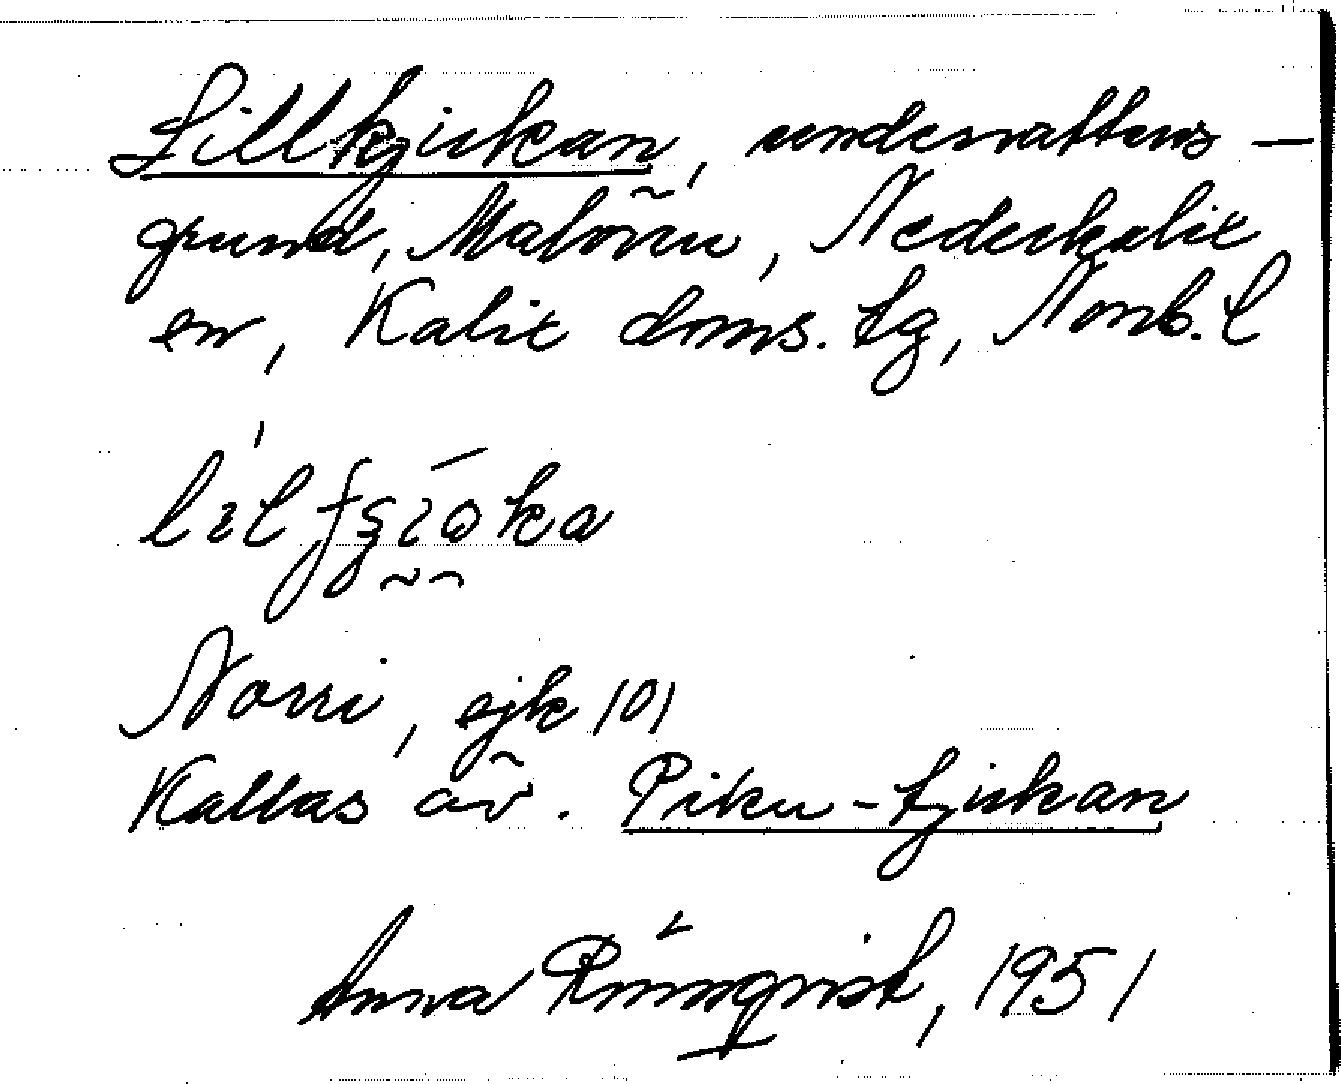 Lillkjickan, undervattens-
grund, Malören, Nederkalix
sn, Kalix doms. tg, Norrb. l
Norri, ejk 101
Kallas äv. Piku-tjickan
Anna Rönnqvist, 1951